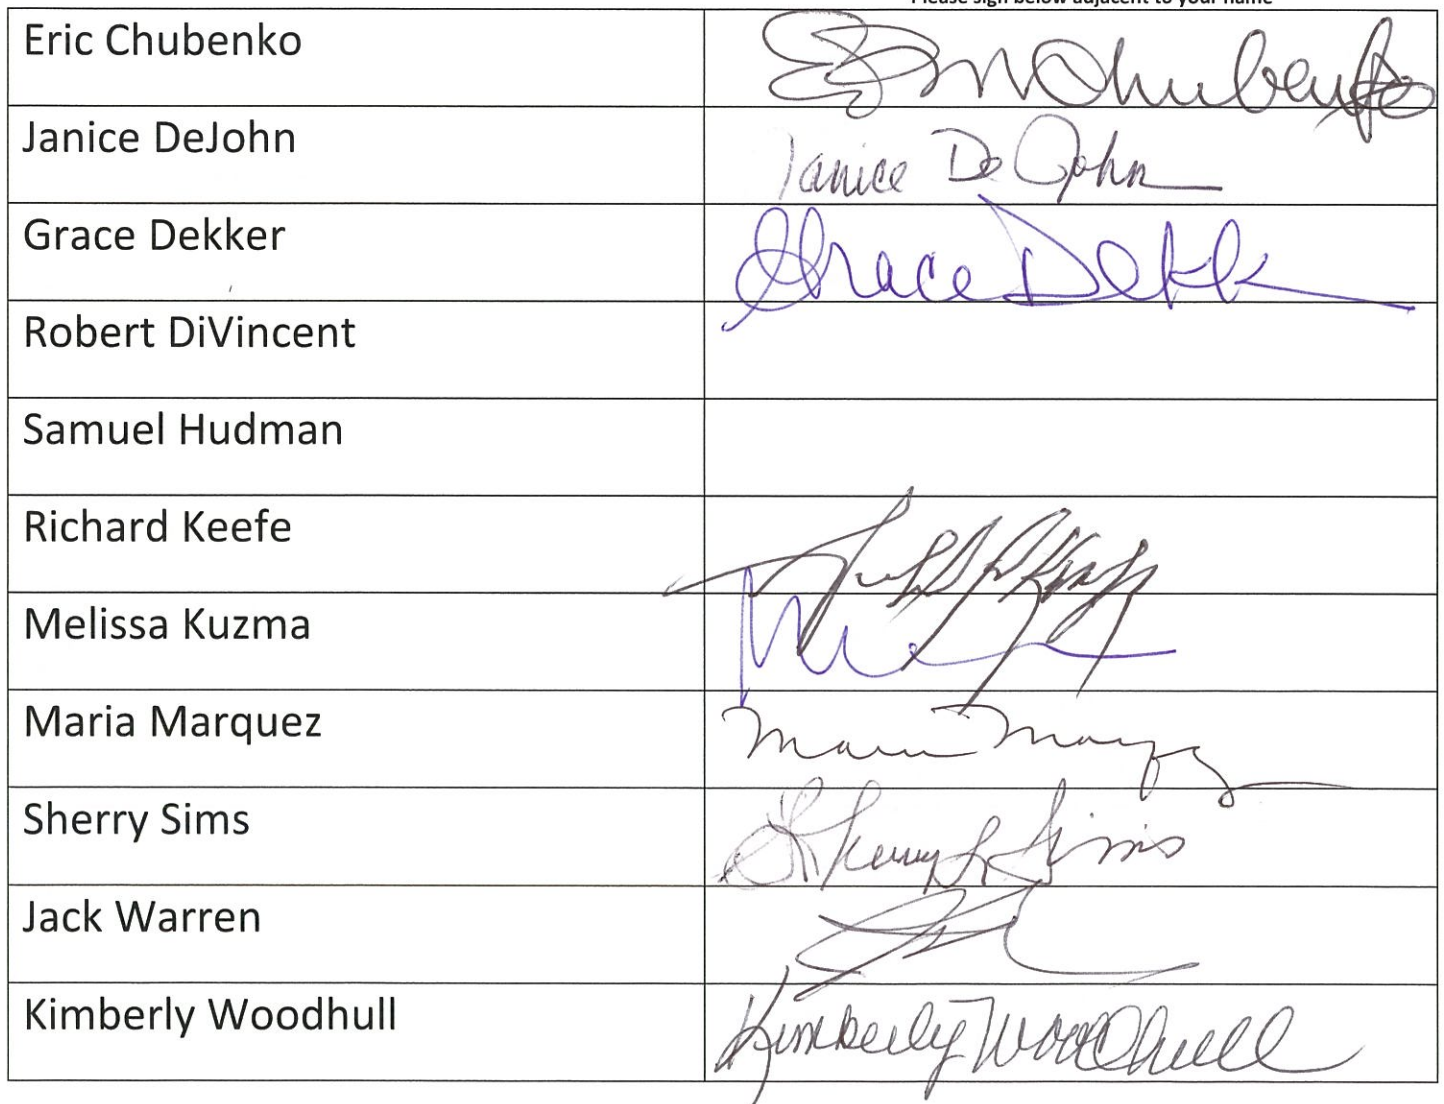 Please sign below adjacent to your name
Eric Chubenko Chubenko
Janice DeJohn Janice DeJohn
Grace Dekker Grace Dekk
Robert DiVincent
Samuel Hudman
Richard Keefe
Melissa Kuzma
Maria Marquez Maria Marqz
Sherry Sims Sherry L Sims
Jack Warren
Kimberly Woodhull Kimberly Woodhull